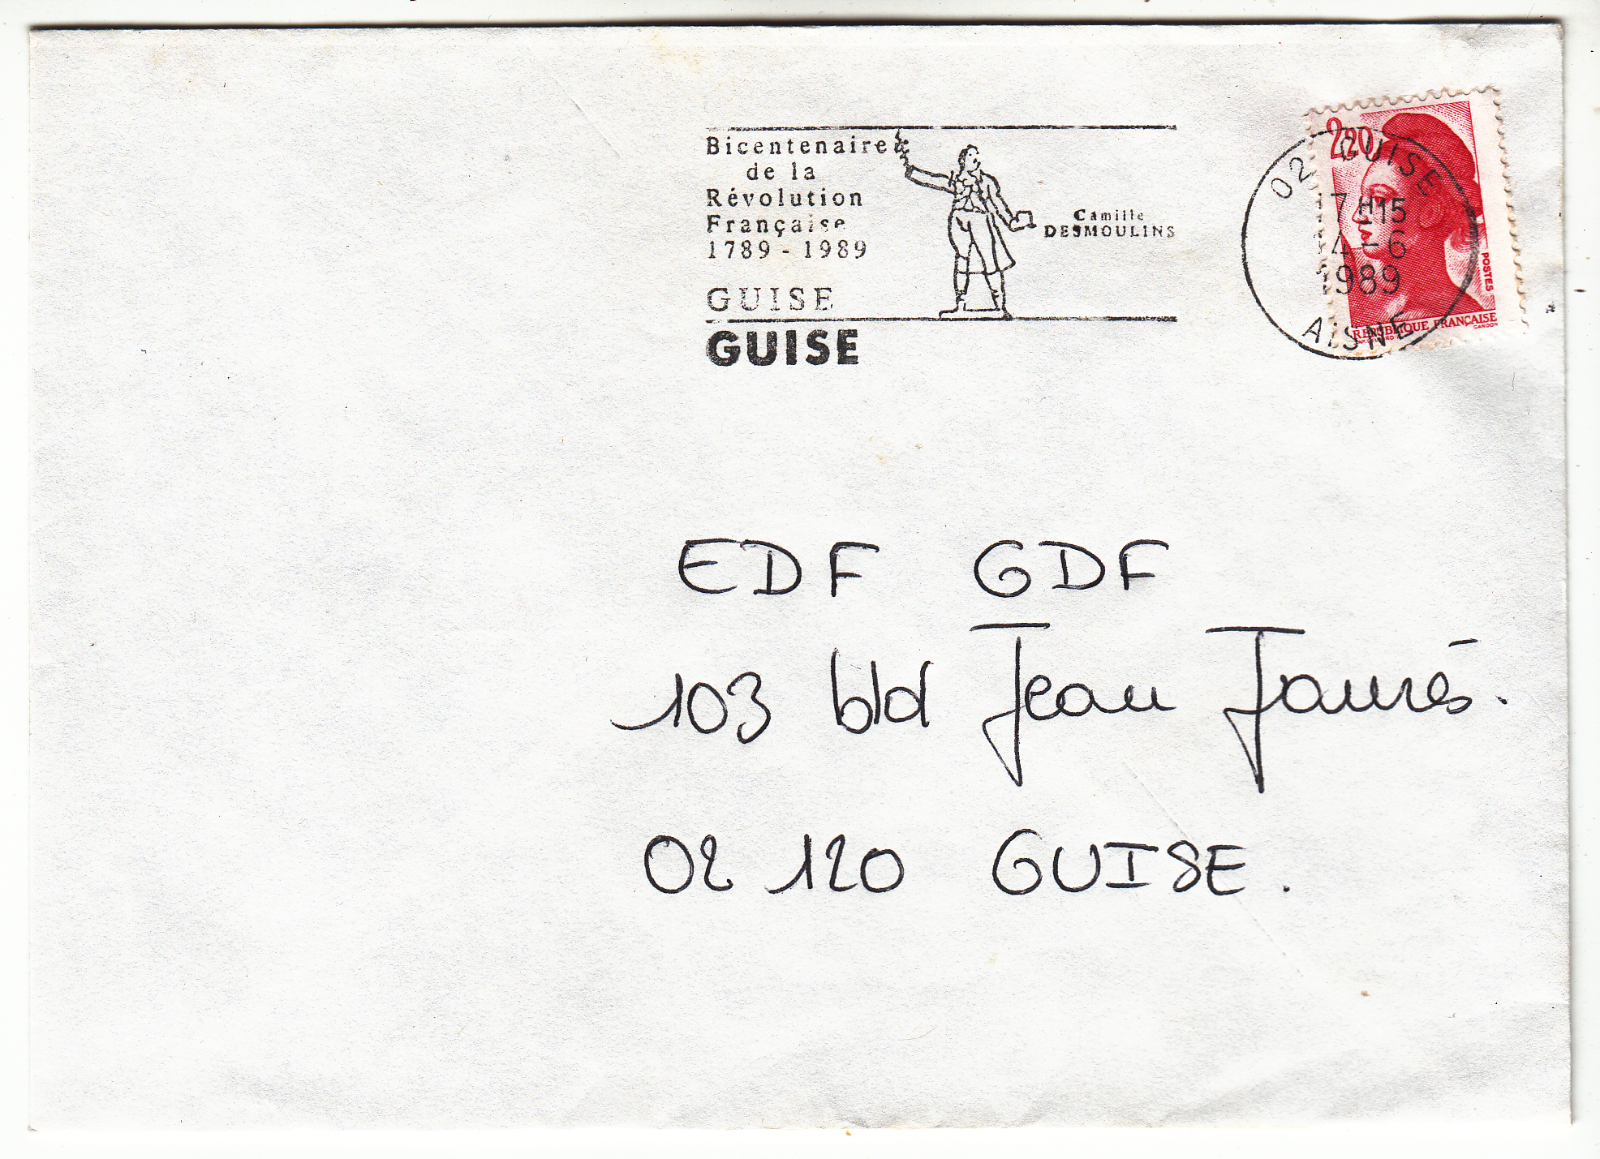 Bicentenaire
de la
Révolution
Française
1789 - 1989
GUISE
GUISE
Camille
DESMOULINS
2,20
POSTES
RÉPUBLIQUE FRANÇAISE
GANDON
02 GUISE
17H15
14-6
1989
AISNE
EDF GDF
103 bld Jean Jaurés.
02 120 GUISE.